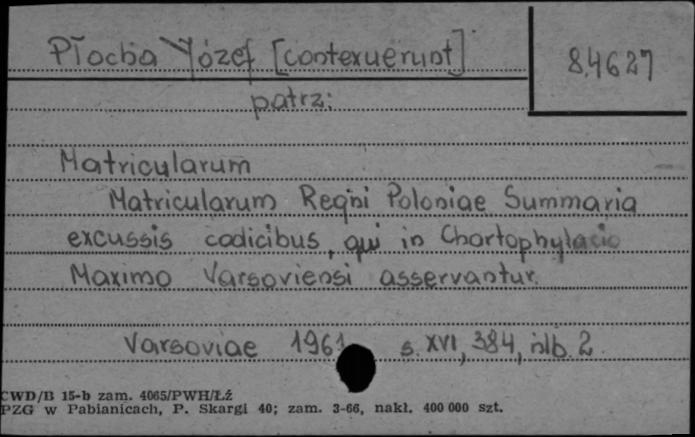 Płocha Józef [contexuerunt]
84627
patrz:
Matricularum
Matricularum Regni Poloniae Summaria
excussis codicibus, qui in Chartophylacio
Maximo Varsoviensi asservantur.
Varsoviae 1961 s. XVI, 384, nlb. 2.
CWD/B 15-b zam. 4065/PWH/Łź
PZG w Pabianicach, P. Skargi 40; zam. 3-66, nakł. 400 000 szt.